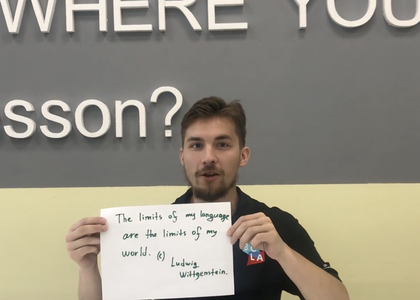 WHERE YOU
sson?
The limits of my language
are the limits of my
world. (c)
Ludwig
Wittgenstein.
LA